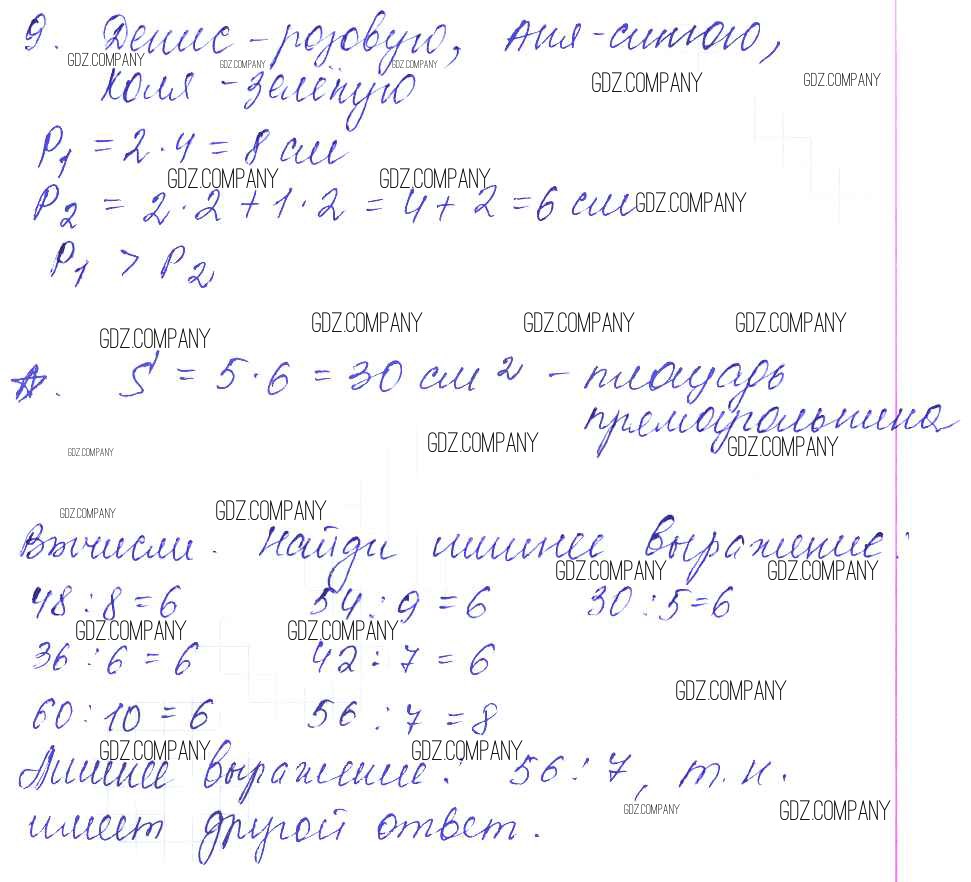 9. Денис - розовую, Аня - синюю,
GDZ.COMPANY GDZ.COMPANY GDZ.COMPANY GDZ.COMPANY GDZ.COMPANY
Коля - зелёную
P1 = 2 · 4 = 8 см
GDZ.COMPANY GDZ.COMPANY
P2 = 2 · 2 + 1 · 2 = 4 + 2 = 6 см GDZ.COMPANY
P1 > P2
GDZ.COMPANY GDZ.COMPANY GDZ.COMPANY GDZ.COMPANY
S = 5 · 6 = 30 см² - площадь
прямоугольника
GDZ.COMPANY GDZ.COMPANY GDZ.COMPANY
GDZ.COMPANY GDZ.COMPANY
Вычисли. Найди лишнее выражение:
GDZ.COMPANY GDZ.COMPANY
48 : 8 = 6 54 : 9 = 6 30 : 5 = 6
GDZ.COMPANY GDZ.COMPANY
36 : 6 = 6 42 : 7 = 6
GDZ.COMPANY
60 : 10 = 6 56 : 7 = 8
GDZ.COMPANY GDZ.COMPANY
Лишнее выражение: 56 : 7, т. к.
GDZ.COMPANY GDZ.COMPANY
имеет другой ответ.